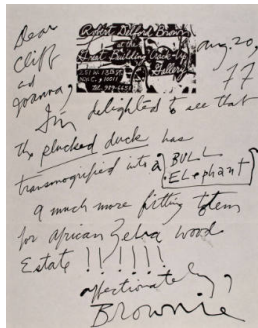 Dear
Cliff
and
Joanna,
Robert Delford Brown
at the
Great Building Crack-up
Gallery
251 W. 13th St.
N.Y.C., 10011
Tel. 989-4658
Aug. 20,
77
I'm delighted to see that
the plucked duck has
transmogrified into a BULL
ELephant
a much more fitting totem
for African Zebra Wood
Estate !!!!!!
affectionately,
Brownie